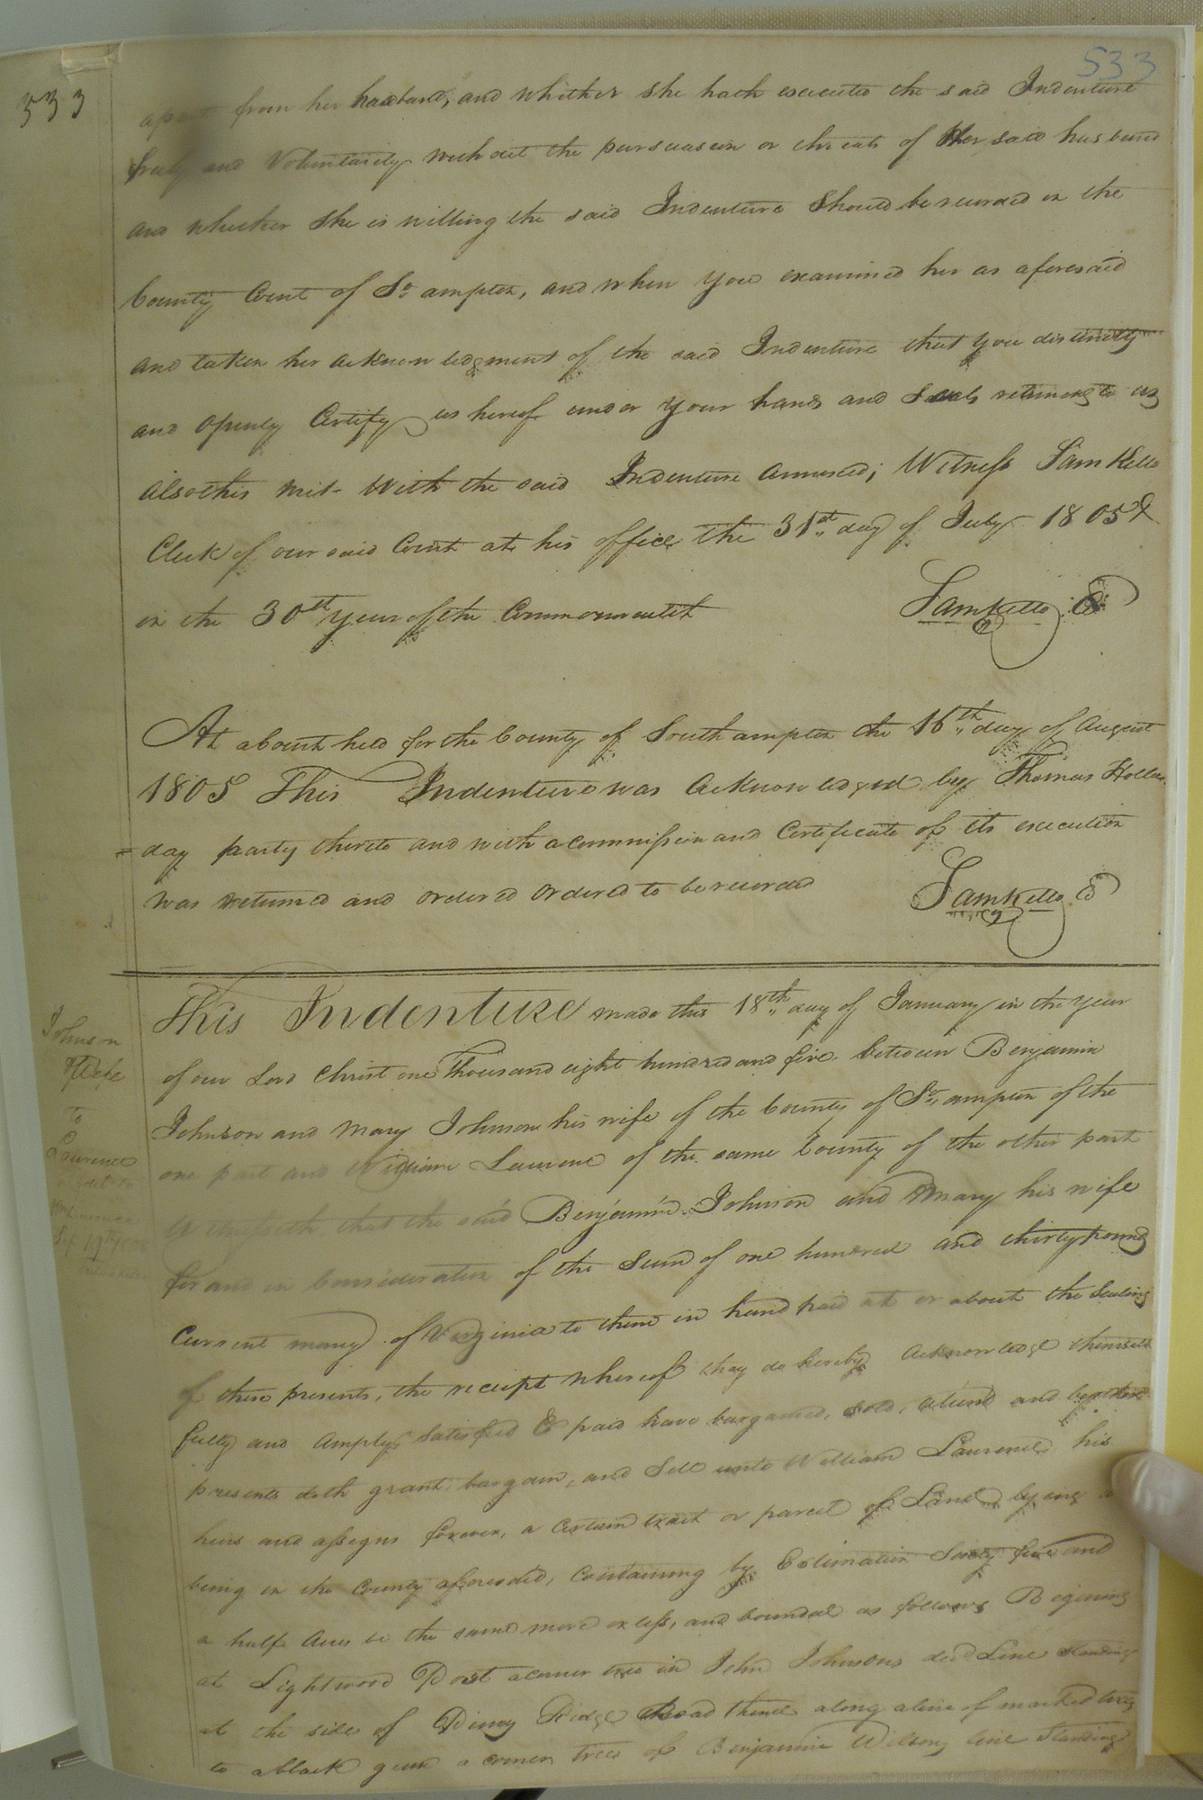 533
533
apart from her husband, and whether she hath executed the said Indenture
freely and Voluntarily without the pursuasion or threats of Her said husband
and whether She is willing the said Indenture Should be recorded in the
County Court of So. ampton, and when you examined her as aforesaid
and taken her acknowledgment of the said Indenture that you distinctly
and openly Certify us hereof under your hands and Seals returning to us
also this writ With the said Indenture annexed; Witness Sam Kello
Clerk of our said Court at his office the 31st day of July 1805 &
in the 30th year of the Commonwealth Sam Kello Cl
At a Court held for the County of Southampton the 16th day of August
1805 This Indenture was acknowledged by Thomas Holla
= day party thereto and with a commission and Certificate of its execution
was returned and ordered ordered to be recorded Sam Kello Cl
This Indenture made this 18th day of January in the year
of our Lord Christ one Thousand eight hundred and five between Benjamin
Johnson and Mary Johnson his wife of the County of So. ampton of the
one part and William Laurence of the same County of the other part
Witnesseth that the said Benjamin Johnson and Mary his wife
for and in Consideration of the Sum of one hundred and thirty pounds
Current money of Virginia to them in hand paid at or about the Sealing
of these presents, the receipt whereof they do hereby acknowledge themselves
fully and amply Satisfied & paid have bargained, sold, and by these
presents doth grant bargain, and Sell unto William Laurence his
heirs and assigns forever, a certain tract or parcel of Land lying and
being in the County aforesaid, Containing by Estimation Sixty five and
a half Acres be the same more or less, and bounded as follows Begining
at Lightwood Post a corner tree in John Johnsons decd Line Standing
at the side of Piney Ridge Road thence along a line of marked trees
to a black gum a corner tree of Benjamin Wilsons line Standing
Johnson
& Wife
to
Laurence